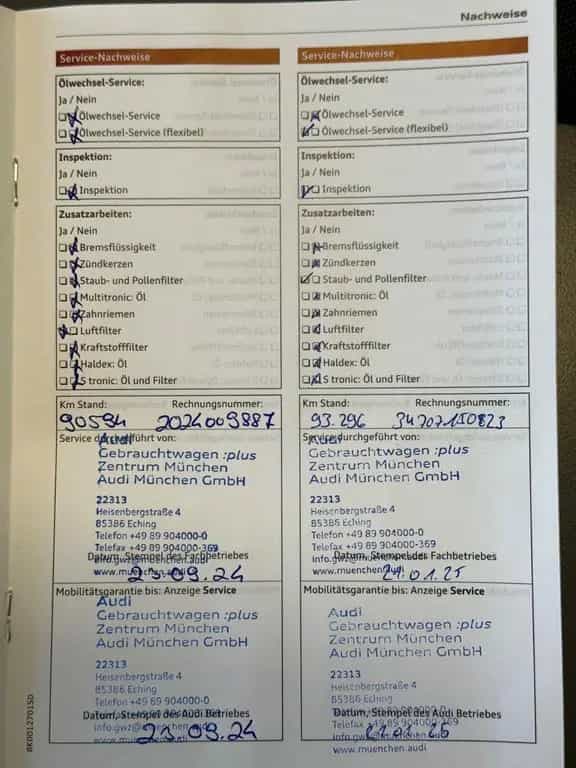 Nachweise
Service-Nachweise
Ölwechsel-Service:
Ja / Nein
Ölwechsel-Service
Ölwechsel-Service (flexibel)
Inspektion:
Ja / Nein
Inspektion
Zusatzarbeiten:
Ja / Nein
Bremsflüssigkeit
Zündkerzen
Staub- und Pollenfilter
Multitronic: Öl
Zahnriemen
Luftfilter
Kraftstofffilter
Haldex: Öl
S tronic: Öl und Filter
Km Stand: Rechnungsnummer:
90594 2024009887
Service durchgeführt von:
Audi
Gebrauchtwagen :plus
Zentrum München
Audi München GmbH
22313
Heisenbergstraße 4
85386 Eching
Telefon +49 89 904000-0
Telefax +49 89 904000-369
Datum, Stempel des Fachbetriebes
info.gwz@muenchen.audi
www.muenchen.audi
23.09.24
Mobilitätsgarantie bis: Anzeige Service
Audi
Gebrauchtwagen :plus
Zentrum München
Audi München GmbH
22313
Heisenbergstraße 4
85386 Eching
Telefon +49 89 904000-0
Datum, Stempel des Audi Betriebes
info.gwz@muenchen.audi
23.09.24
Service-Nachweise
Ölwechsel-Service:
Ja / Nein
Ölwechsel-Service
Ölwechsel-Service (flexibel)
Inspektion:
Ja / Nein
Inspektion
Zusatzarbeiten:
Ja / Nein
Bremsflüssigkeit
Zündkerzen
Staub- und Pollenfilter
Multitronic: Öl
Zahnriemen
Luftfilter
Kraftstofffilter
Haldex: Öl
S tronic: Öl und Filter
Km Stand: Rechnungsnummer:
93.296
Service durchgeführt von:
Audi
Gebrauchtwagen :plus
Zentrum München
Audi München GmbH
22313
Heisenbergstraße 4
85386 Eching
Telefon +49 89 904000-0
Telefax +49 89 904000-369
Datum, Stempel des Fachbetriebes
info.gwz@muenchen.audi
www.muenchen.audi
Mobilitätsgarantie bis: Anzeige Service
Audi
Gebrauchtwagen :plus
Zentrum München
Audi München GmbH
22313
Heisenbergstraße 4
85386 Eching
Datum, Stempel des Audi Betriebes
Telefax +49 89 904000-369
www.muenchen.audi